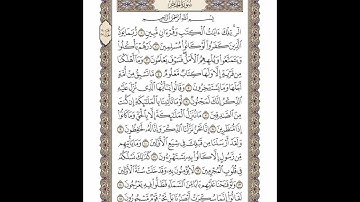 سُورَةُ الحِجْرِ
بِسْمِ اللَّهِ الرَّحْمَٰنِ الرَّحِيمِ
الٓر تِلْكَ ءَايَٰتُ ٱلْكِتَٰبِ وَقُرْءَانٍ مُّبِينٍ ١ رُّبَمَا يَوَدُّ
ٱلَّذِينَ كَفَرُوا۟ لَوْ كَانُوا۟ مُسْلِمِينَ ٢ ذَرْهُمْ يَأْكُلُوا۟
وَيَتَمَتَّعُوا۟ وَيُلْهِهِمُ ٱلْأَمَلُ فَسَوْفَ يَعْلَمُونَ ٣ وَمَآ أَهْلَكْنَا
مِن قَرْيَةٍ إِلَّا وَلَهَا كِتَابٌ مَّعْلُومٌ ٤ مَّا تَسْبِقُ مِنْ أُمَّةٍ
أَجَلَهَا وَمَا يَسْتَـْٔخِرُونَ ٥ وَقَالُوا۟ يَٰٓأَيُّهَا ٱلَّذِى نُزِّلَ عَلَيْهِ
ٱلذِّكْرُ إِنَّكَ لَمَجْنُونٌ ٦ لَّوْ مَا تَأْتِينَا بِٱلْمَلَٰٓئِكَةِ إِن كُنتَ
مِنَ ٱلصَّٰدِقِينَ ٧ مَا نُنَزِّلُ ٱلْمَلَٰٓئِكَةَ إِلَّا بِٱلْحَقِّ وَمَا كَانُوٓا۟
إِذًا مُّنظَرِينَ ٨ إِنَّا نَحْنُ نَزَّلْنَا ٱلذِّكْرَ وَإِنَّا لَهُۥ لَحَٰفِظُونَ ٩
وَلَقَدْ أَرْسَلْنَا مِن قَبْلِكَ فِى شِيَعِ ٱلْأَوَّلِينَ ١٠ وَمَا يَأْتِيهِم
مِّن رَّسُولٍ إِلَّا كَانُوا۟ بِهِۦ يَسْتَهْزِءُونَ ١١ كَذَٰلِكَ نَسْلُكُهُۥ
فِى قُلُوبِ ٱلْمُجْرِمِينَ ١٢ لَا يُؤْمِنُونَ بِهِۦ وَقَدْ خَلَتْ سُنَّةُ ٱلْأَوَّلِينَ
١٣ وَلَوْ فَتَحْنَا عَلَيْهِم بَابًا مِّنَ ٱلسَّمَآءِ فَظَلُّوا۟ فِيهِ يَعْرُجُونَ ١٤
لَقَالُوٓا۟ إِنَّمَا سُكِّرَتْ أَبْصَٰرُنَا بَلْ نَحْنُ قَوْمٌ مَّسْحُورُونَ ١٥